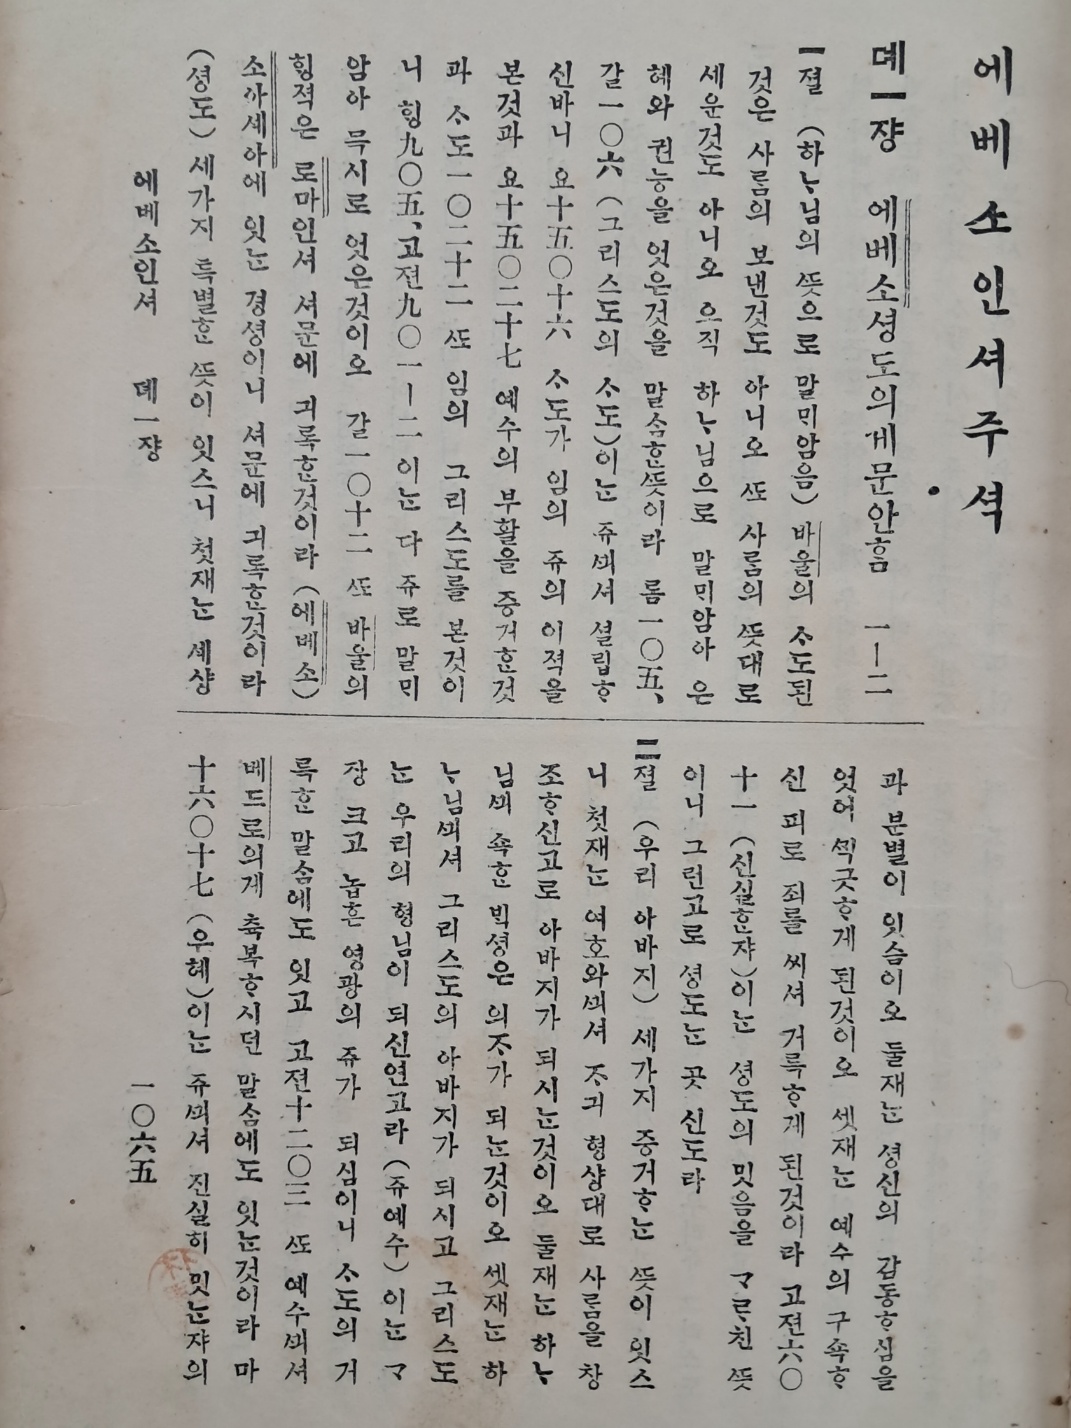 에베소인셔주셕
뎨一쟝 에베소셩도의게문안ᄒᆞᆷ 一ㅡ二
一졀 (하ᄂᆞ님의 ᄯᅳᆺ으로 말ᄆᆡ암음) 바울의 ᄉᆞ도된
것은 사ᄅᆞᆷ의 보낸것도 아니오 ᄯᅩ 사ᄅᆞᆷ의 ᄯᅳᆺ대로
세운것도 아니오 으직 하ᄂᆞ님으로 말ᄆᆡ암아 은
혜와 권능을 엇은것을 말ᄉᆞᆷᄒᆞᆫᄯᅳᆺ이라 롬一〇五、
갈一〇六 (그리스도의 ᄉᆞ도)이ᄂᆞᆫ 쥬ᄭᅴ셔 셜립ᄒᆞ
신바니 요十五〇十六 ᄉᆞ도가 임의 쥬의 이젹을
본것과 요十五〇二十七 예수의 부활을 증거ᄒᆞᆫ것
과 ᄉᆞ도一〇二十二 ᄯᅩ 임의 그리스도를 본것이
니 ᄒᆡᆼ九〇五、고젼九〇一ㅡ二 이ᄂᆞᆫ 다 쥬로 말ᄆᆡ
암아 믁시로 엇은것이오 갈一〇十二 ᄯᅩ 바울의
ᄒᆡᆼ젹은 로마인셔 셔문에 긔록ᄒᆞᆫ것이라 (에베소)
소아세아에 잇ᄂᆞᆫ 경셩이니 셔문에 긔록ᄒᆞᆫ것이라
(셩도) 세가지 특별ᄒᆞᆫ ᄯᅳᆺ이 잇스니 첫재ᄂᆞᆫ 세샹
과 분별이 잇슴이오 둘재ᄂᆞᆫ 셩신의 감동ᄒᆞ심을
엇어 ᄭᆡᆨ긋ᄒᆞ게 된것이오 셋재ᄂᆞᆫ 예수의 구쇽ᄒᆞ
신 피로 죄를 씨셔 거륵ᄒᆞ게 된것이라 고젼六〇
十一 (신실ᄒᆞᆫ쟈)이ᄂᆞᆫ 셩도의 밋음을 ᄀᆞᄅᆞ친 ᄯᅳᆺ
이니 그런고로 셩도ᄂᆞᆫ 곳 신도라
二졀 (우리 아바지) 세가지 증거ᄒᆞᄂᆞᆫ ᄯᅳᆺ이 잇스
니 첫재ᄂᆞᆫ 여호와ᄭᅴ셔 ᄌᆞ긔 형샹대로 사ᄅᆞᆷ을 창
조ᄒᆞ신고로 아바지가 되시ᄂᆞᆫ것이오 둘재ᄂᆞᆫ 하ᄂᆞ
님ᄭᅴ 쇽ᄒᆞᆫ ᄇᆡᆨ셩은 의ᄌᆞ가 되ᄂᆞᆫ것이오 셋재ᄂᆞᆫ 하
ᄂᆞ님ᄭᅴ셔 그리스도의 아바지가 되시고 그리스도
ᄂᆞᆫ 우리의 형님이 되신연고라 (쥬예수)이ᄂᆞᆫ ᄀᆞ
장 크고 놉흔 영광의 쥬가 되심이니 ᄉᆞ도의 거
륵ᄒᆞᆫ 말ᄉᆞᆷ에도 잇고 고젼十二〇三 ᄯᅩ 예수ᄭᅴ셔
베드로의게 축복ᄒᆞ시던 말ᄉᆞᆷ에도 잇ᄂᆞᆫ것이라 마
十六〇十七 (우혜)이ᄂᆞᆫ 쥬ᄭᅴ셔 진실히 밋ᄂᆞᆫ쟈의
에베소인셔 뎨一쟝 一〇六五